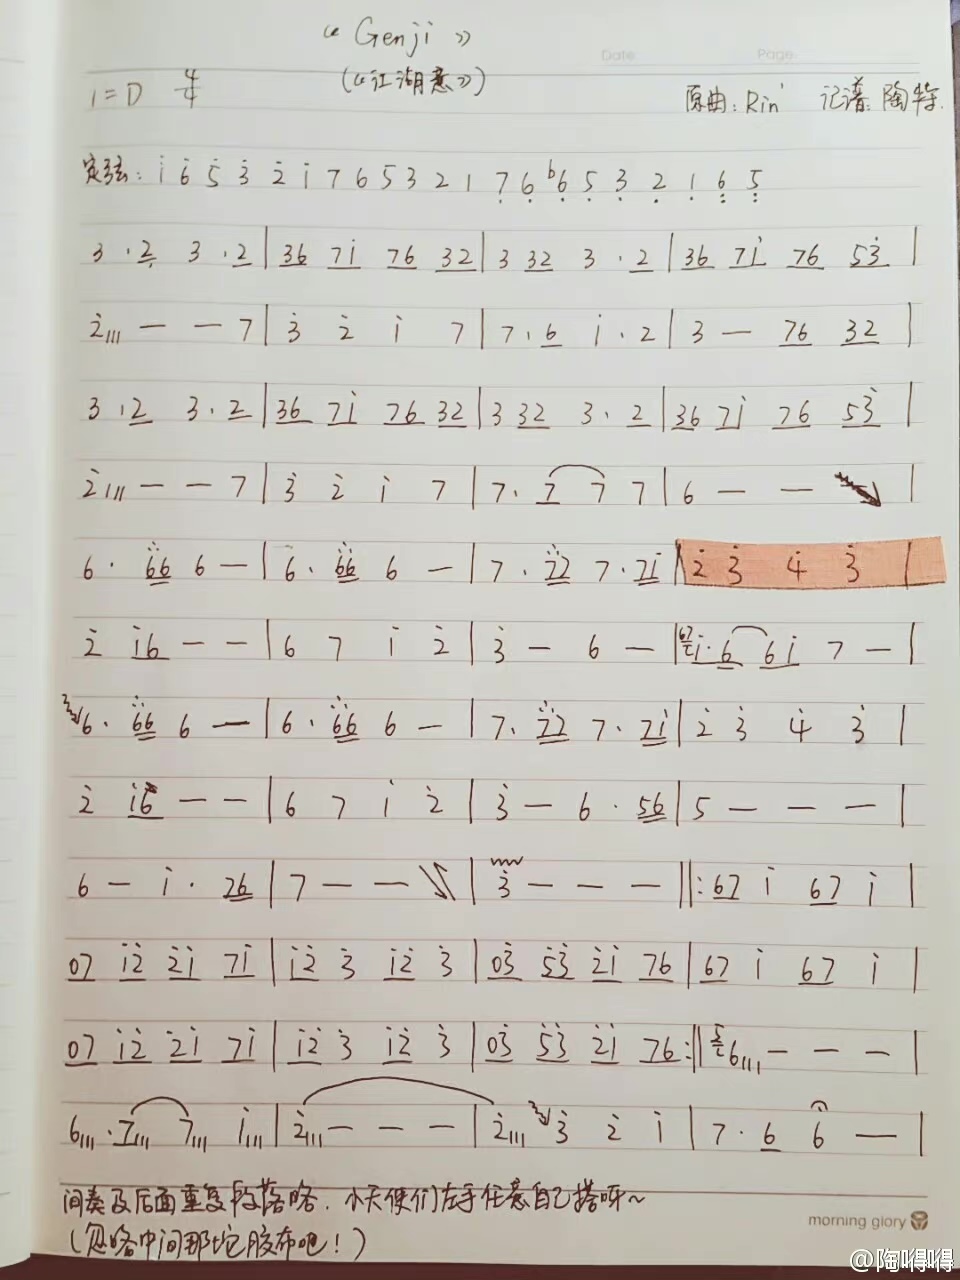 《Genji》
Date Page
1=D 4/4 (《江湖意》)
原曲:Rin' 记谱:陶等.
定弦: i̇ 6̇ 5̇ 3̇ 2̇ i 7 6 5 3 2 1 7̣ 6̣ b6̣ 5̣ 3̣ 2̣ 1̣ 6̣ 5̣
3 · 2 3 · 2 | 36 7i 76 32 | 3 32 3 · 2 | 36 7i 76 53̇ |
2̇/// — — 7 | 3̇ 2̇ i 7 | 7 · 6 i · 2 | 3 — 76 32 |
3 · 2 3 · 2 | 36 7i 76 32 | 3 32 3 · 2 | 36 7i 76 53̇ |
2̇/// — — 7 | 3̇ 2̇ i 7 | 7 · 7 7 7 | 6 — — |
6 · 66 6 — | 6 · 66 6 — | 7 · 77 7 · 7i | 2̇ 3̇ 4̇ 3̇ |
2̇ i6 — — | 6 7 i 2̇ | 3̇ — 6 — | 67 i · 6 6i 7 — |
6 · 66 6 — | 6 · 66 6 — | 7 · 77 7 · 7i | 2̇ 3̇ 4̇ 3̇ |
2̇ i6 — — | 6 7 i 2̇ | 3̇ — 6 · 56 | 5 — — — |
6 — i · 26 | 7 — — | 3̇ — — — ||: 67 i 67 i |
07 i2̇ 2̇i 7i | i2̇ 3̇ i2̇ 3̇ | 03̇ 5̇3̇ 2̇i 76 | 67 i 67 i |
07 i2̇ 2̇i 7i | i2̇ 3̇ i2̇ 3̇ | 03̇ 5̇3̇ 2̇i 76 :|| 5 6/// — — — |
6/// · 7/// 7/// i/// | 2̇/// — — — | 2̇/// 3̇ 2̇ i | 7 · 6 6 — |
间奏及后面重复段落略. 小天使们左手任意自己搭呀~
(忽略中间那坨胶布吧!)
morning glory
@陶嘚嘚